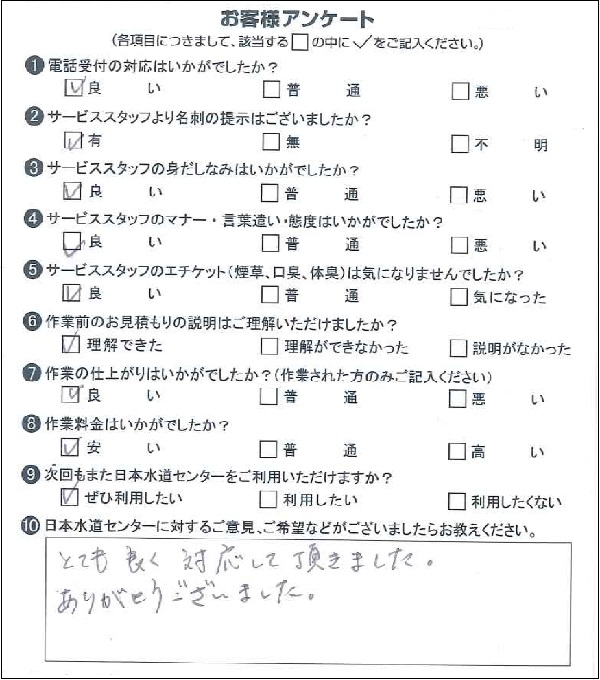 お客様アンケート
(各項目につきまして、該当する□の中に✓をご記入ください。)
❶電話受付の対応はいかがでしたか?
☑良い □普通 □悪い
❷サービススタッフより名刺の提示はございましたか?
☑有 □無 □不明
❸サービススタッフの身だしなみはいかがでしたか?
☑良い □普通 □悪い
❹サービススタッフのマナー・言葉遣い・態度はいかがでしたか?
☑良い □普通 □悪い
❺サービススタッフのエチケット(煙草、口臭、体臭)は気になりませんでしたか?
☑良い □普通 □気になった
❻作業前のお見積もりの説明はご理解いただけましたか?
☑理解できた □理解ができなかった □説明がなかった
❼作業の仕上がりはいかがでしたか?(作業された方のみご記入ください)
☑良い □普通 □悪い
❽作業料金はいかがでしたか?
☑安い □普通 □高い
❾次回もまた日本水道センターをご利用いただけますか?
☑ぜひ利用したい □利用したい □利用したくない
❿日本水道センターに対するご意見、ご希望などがございましたらお教えください。
とても良く対応して頂きました。
ありがとうございました。